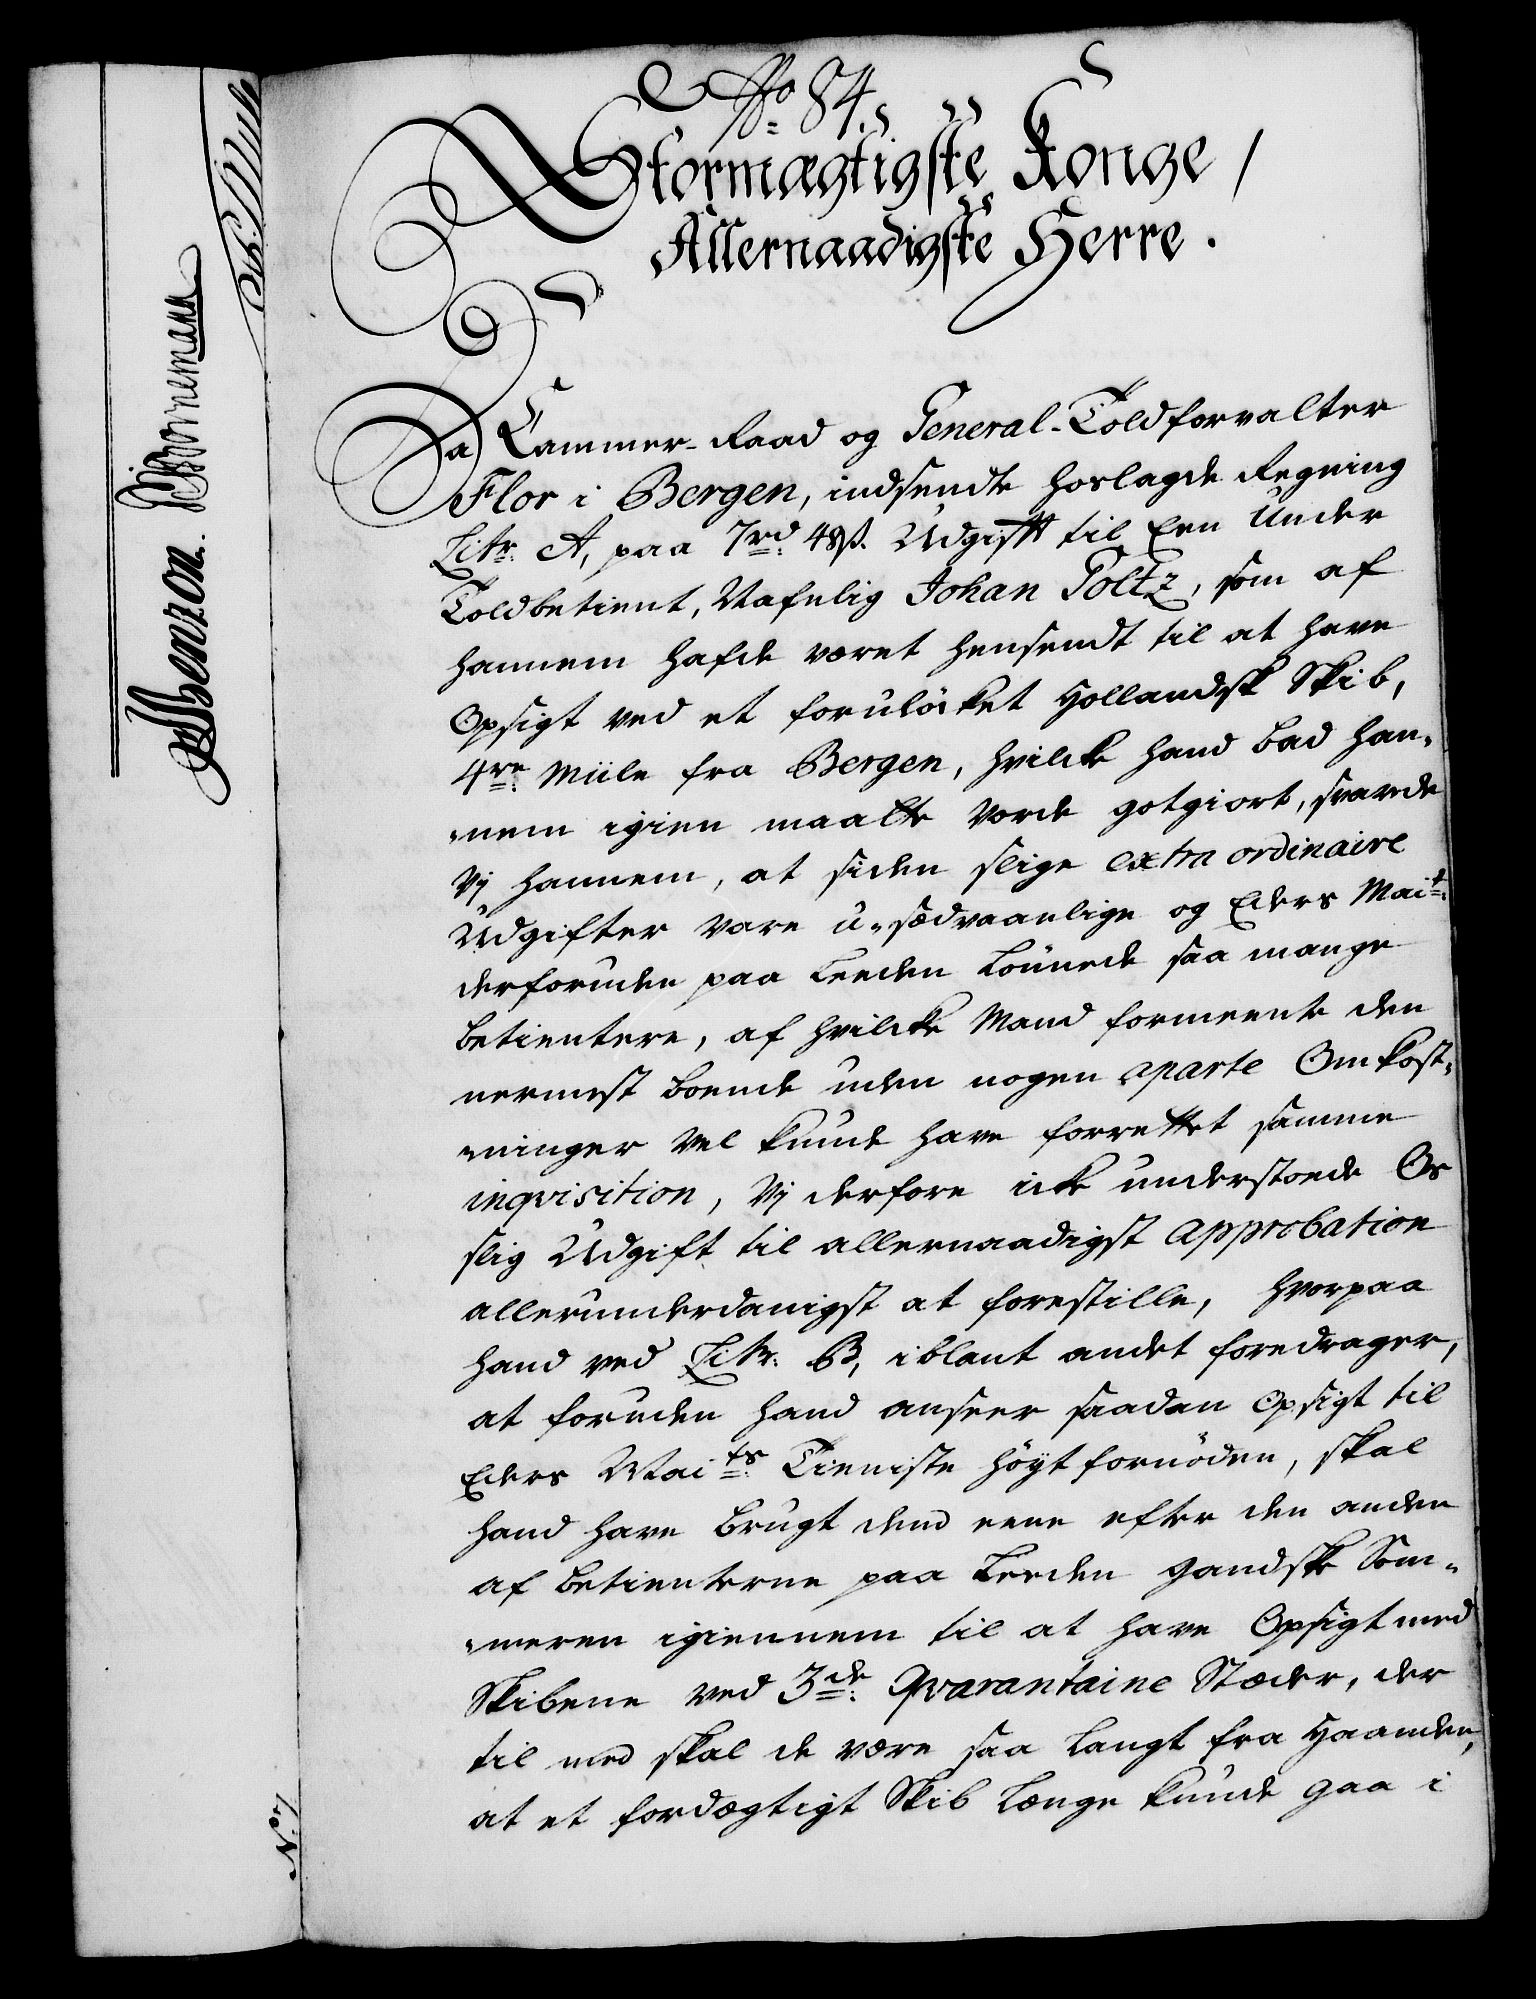 No 84.
Stormægtigste Konge /
Allernaadigste Herre.
Da Cammer-Raad og General-Toldforvalter
Flor i Bergen, indsendte hoslagde Regning
Litr. A, paa 7rd 48ß. Udgifft til Een Under
Toldbetient, Nafnlig Johan Poltz, som af
hannem hafde været hensendt til at have
Opsigt ved et foruløcket Hollandsk Skib,
4re Miile fra Bergen, hvilcke hand bad han-
-nem igien maatte vorde gotgiort, svarede
Vj hannem, at siden slige extra ordinaire
Udgifter vare u-sædvaanlige og Eders Mait:
derforuden paa Leeden lönnede saa mange
betientere, af hvilcke Mand formeente den
nermest boende uden nogen aparte Omkost-
-ninger vel kunde have forrettet samme
inqvisition, Vj derfore icke understoede Os
slig Udgift til allernaadigst approbation
allerunderdanigst at forestille, hvorpaa
hand ved Litr: B, iblant andet foredrager,
at foruden hand anseer saadan Opsigt til
Eders Maits Tieniste höyt fornöden, skal
hand have brugt dend eene efter den anden
af betienterne paa Leeden gandske Som-
-meren igiennem til at have Opsigt med
Skibene ved 3de Qvarantaine Stæder, der
til med skal de være saa langt fra Haanden,
at et fordægtigt Skib længe kunde gaa i
Benzon. Bornemann
No 7